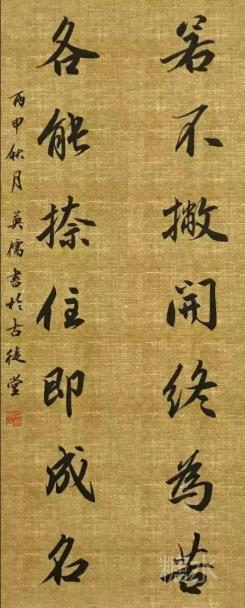 若不撇開終為苦
各能捺住即成名
丙申秋月英儒書於古堂